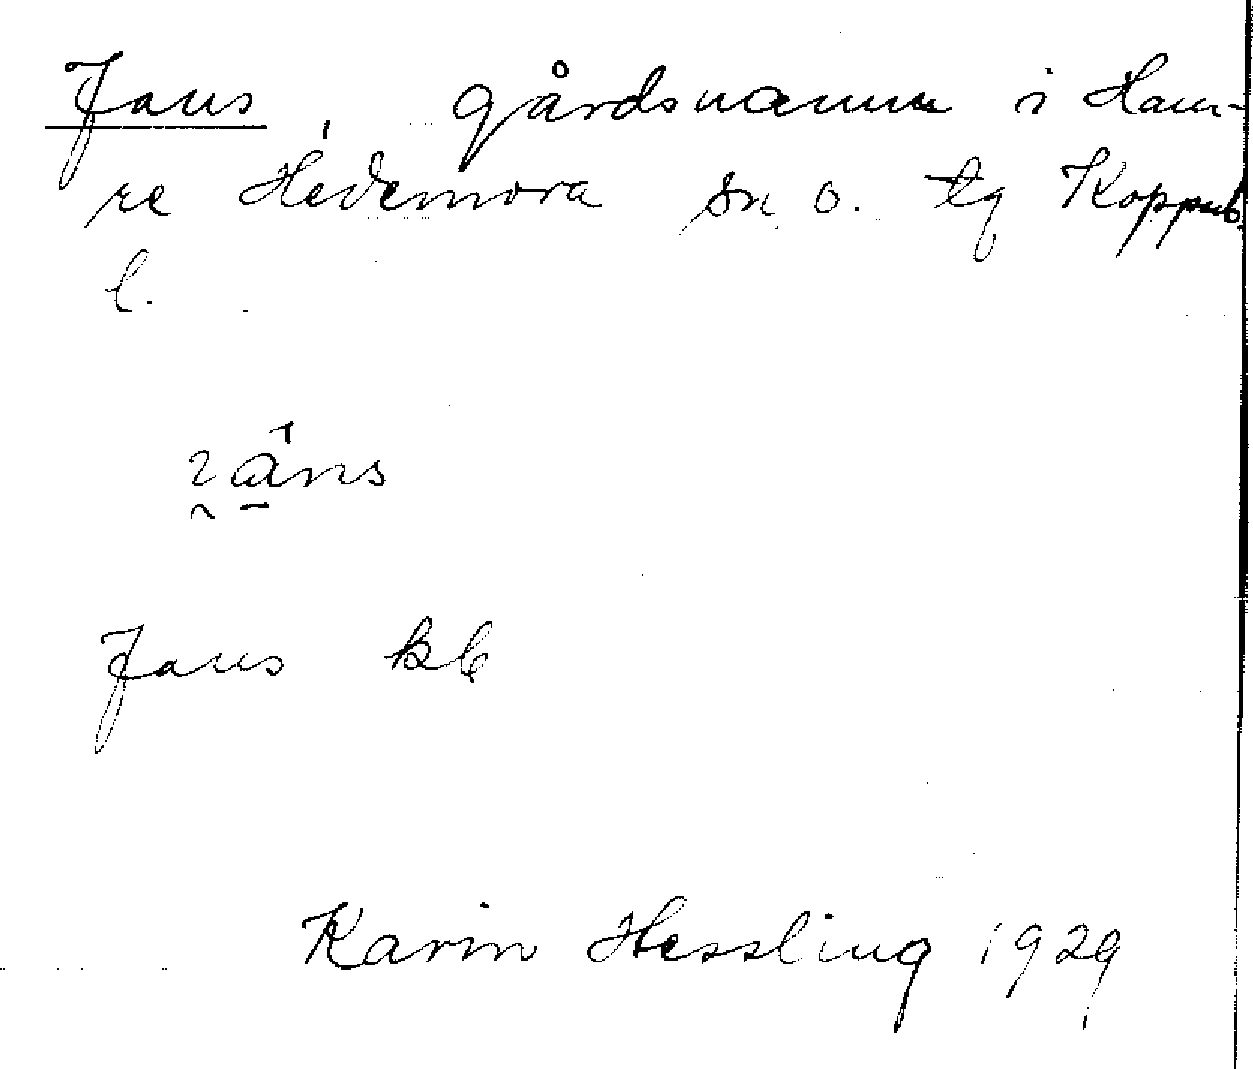 Jans, gårdsnamn i Ham-
re Hedemora sn o. tg Koppab.
l.
Jans kb
Karin Hessling 1929